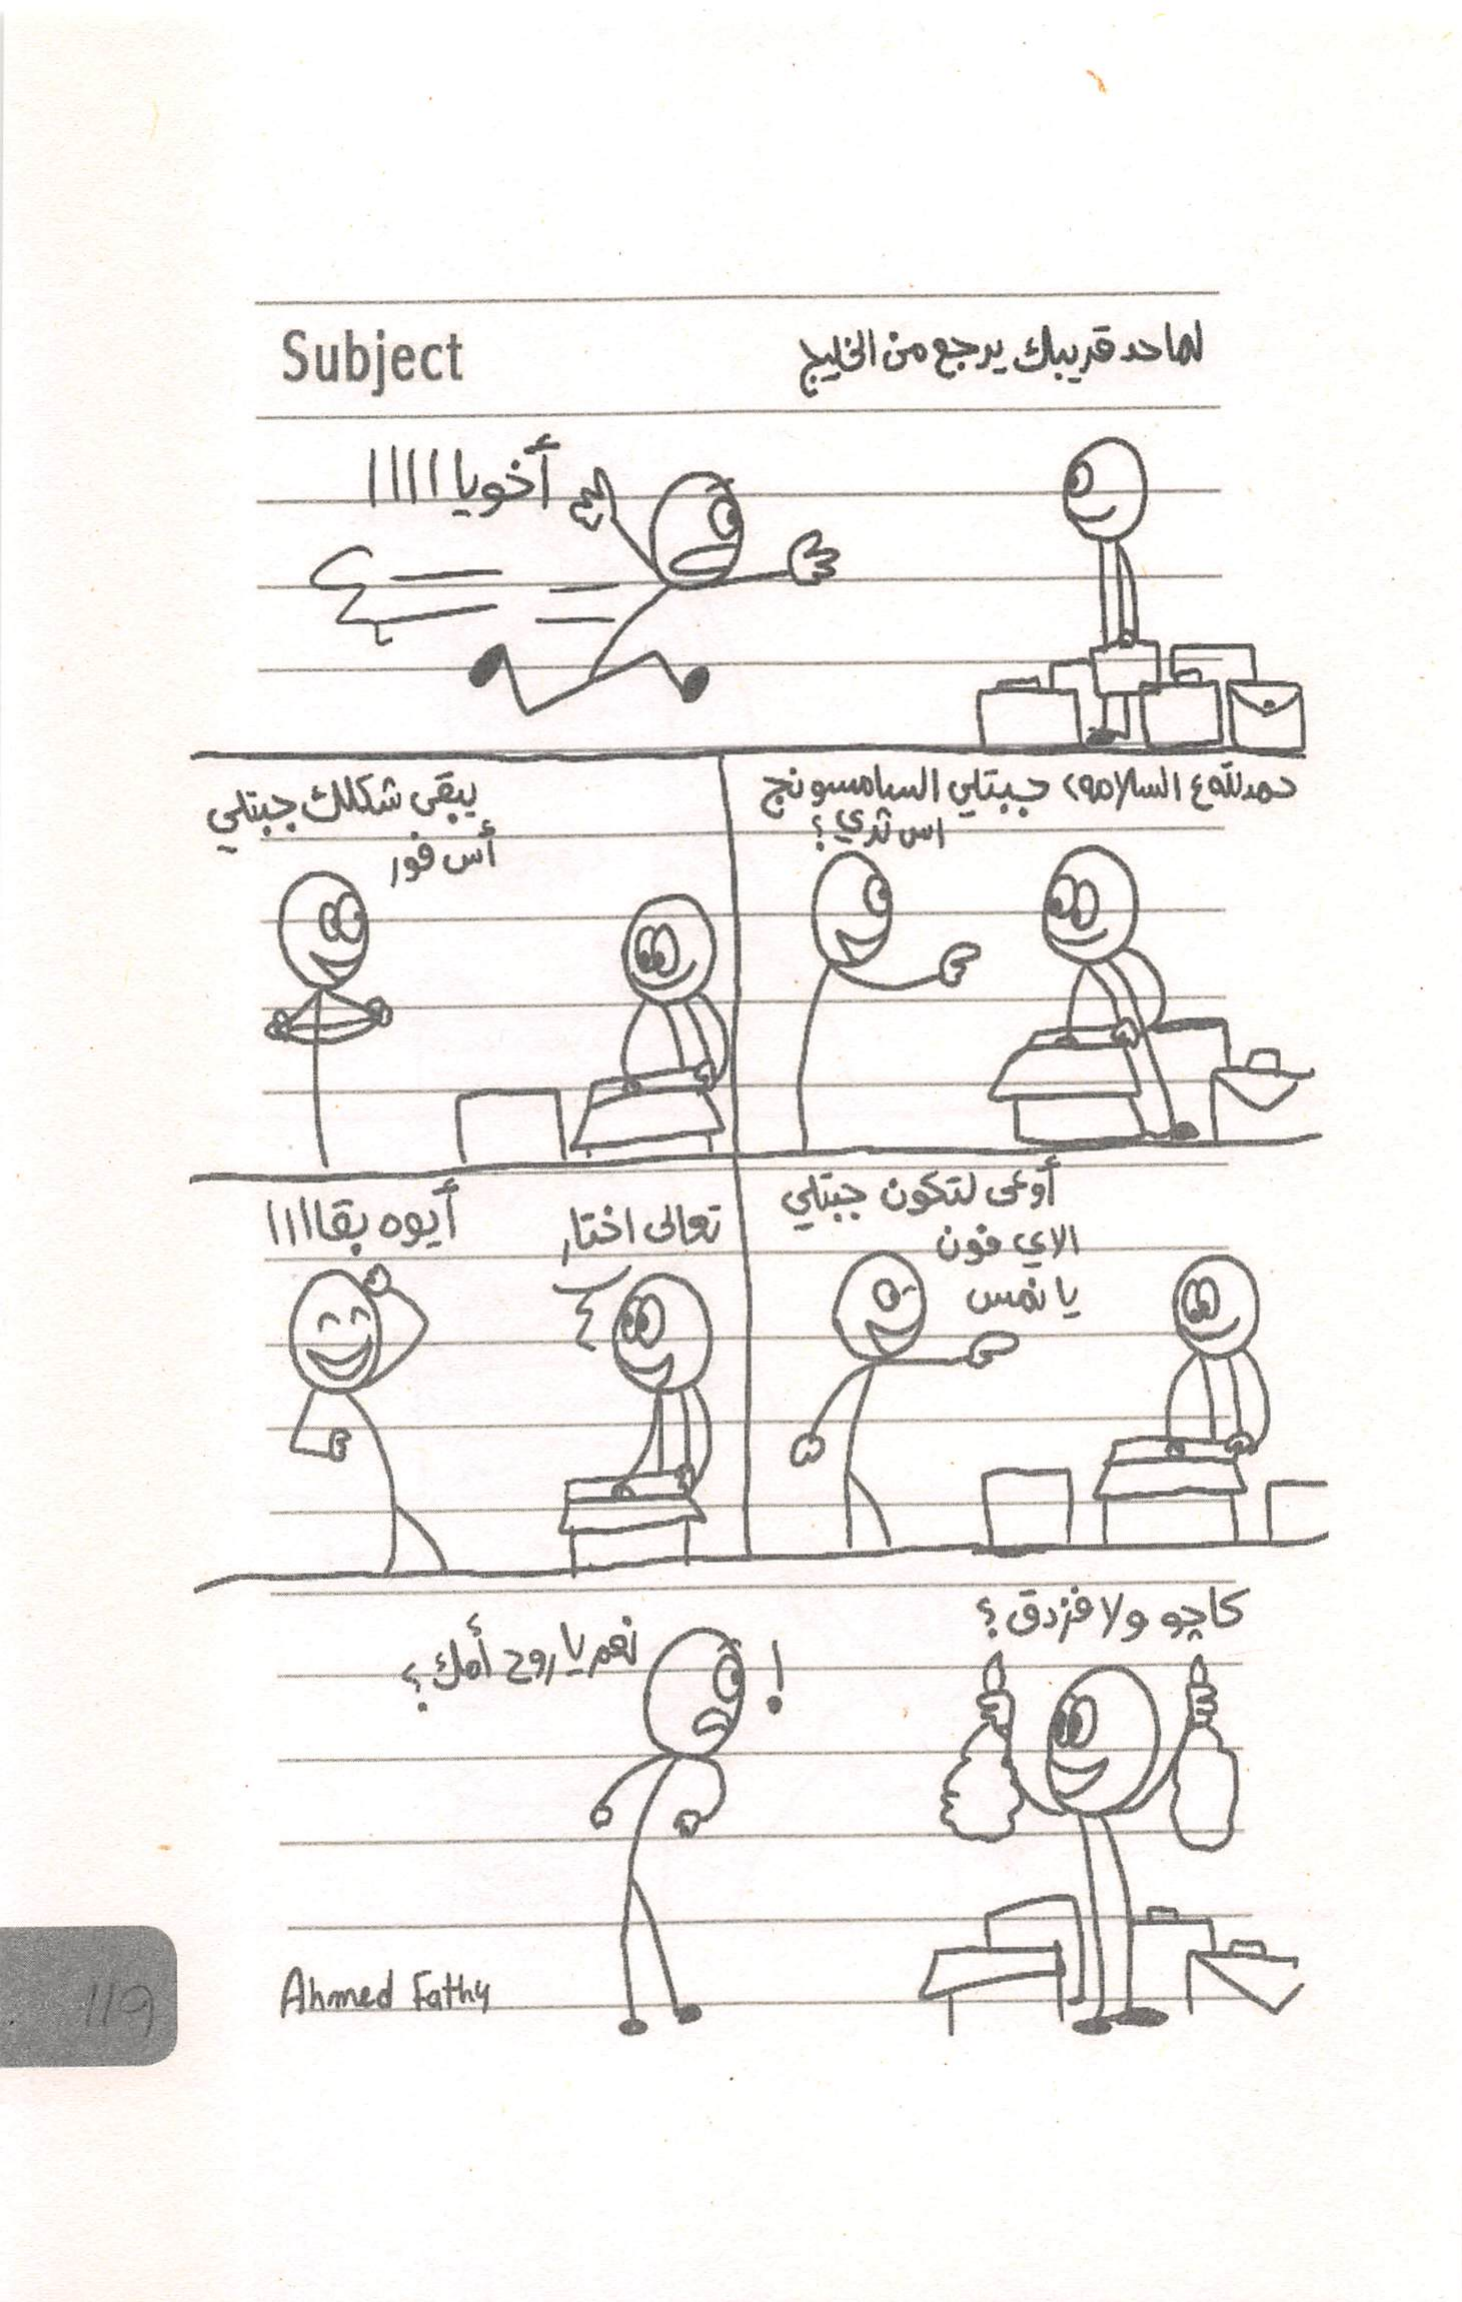 Subject
لما حد قريبك يرجع من الخليج
أخويا ا ا ا ا
حمدلله ع السلامه، جبتلي السامسونج
اس ثري؟
يبقى شكلك جبتلي
أس فور
أوعى لتكون جبتلي
الاي فون
يا نمس
تعالى اختار
أيوه بقاااا
كاچو ولا فزدق؟
!
نعم يا روح أمك؟
Ahmed Fathy
119